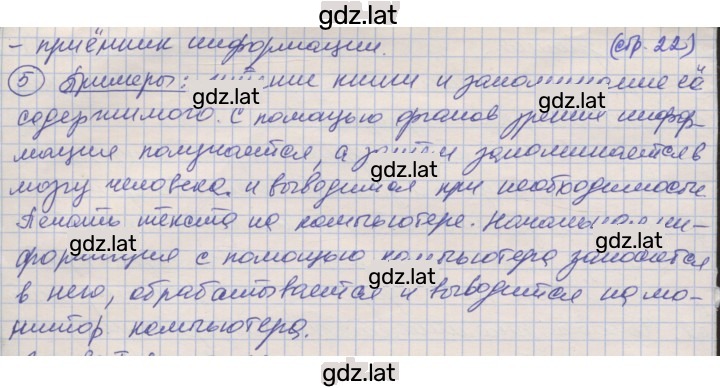 gdz.lat
- приёмник информации. (стр. 22)
⑤ Примеры: книги и запоминание её
gdz.lat gdz.lat
содержимого. С помощью органов зрения инфор-
мация получается, а запоминается в
gdz.lat
мозгу человека и выводится при необходимости
Печать текста на компьютере.
gdz.lat gdz.lat
формация с помощью компьютера заносится
gdz.lat
в него, обрабатывается и выводится на мо-
нитор компьютера.
gdz.lat